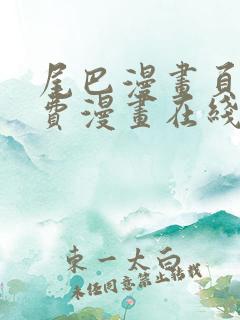 尾巴漫畫頁
費漫畫在綫
東一太白
未任同意禁止轉載